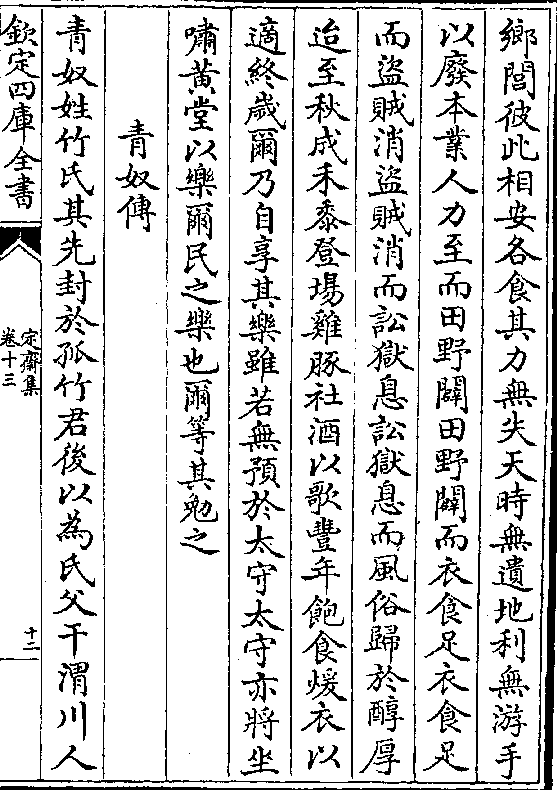 鄉閭彼此相安各食其力無失天時無遺地利無游手
以廢本業人力至而田野闢田野闢而衣食足衣食足
而盜賊消盜賊消而訟獄息訟獄息而風俗歸於醇厚
迨至秋成禾黍登場雞豚社酒以歌豐年飽食煖衣以
適終歲爾乃自享其樂雖若無預於太守太守亦將坐
嘯黃堂以樂爾民之樂也爾等其勉之
青奴傳
青奴姓竹氏其先封於孤竹君後以為氏父干渭川人
欽定四庫全書
定齋集
卷十三
十二